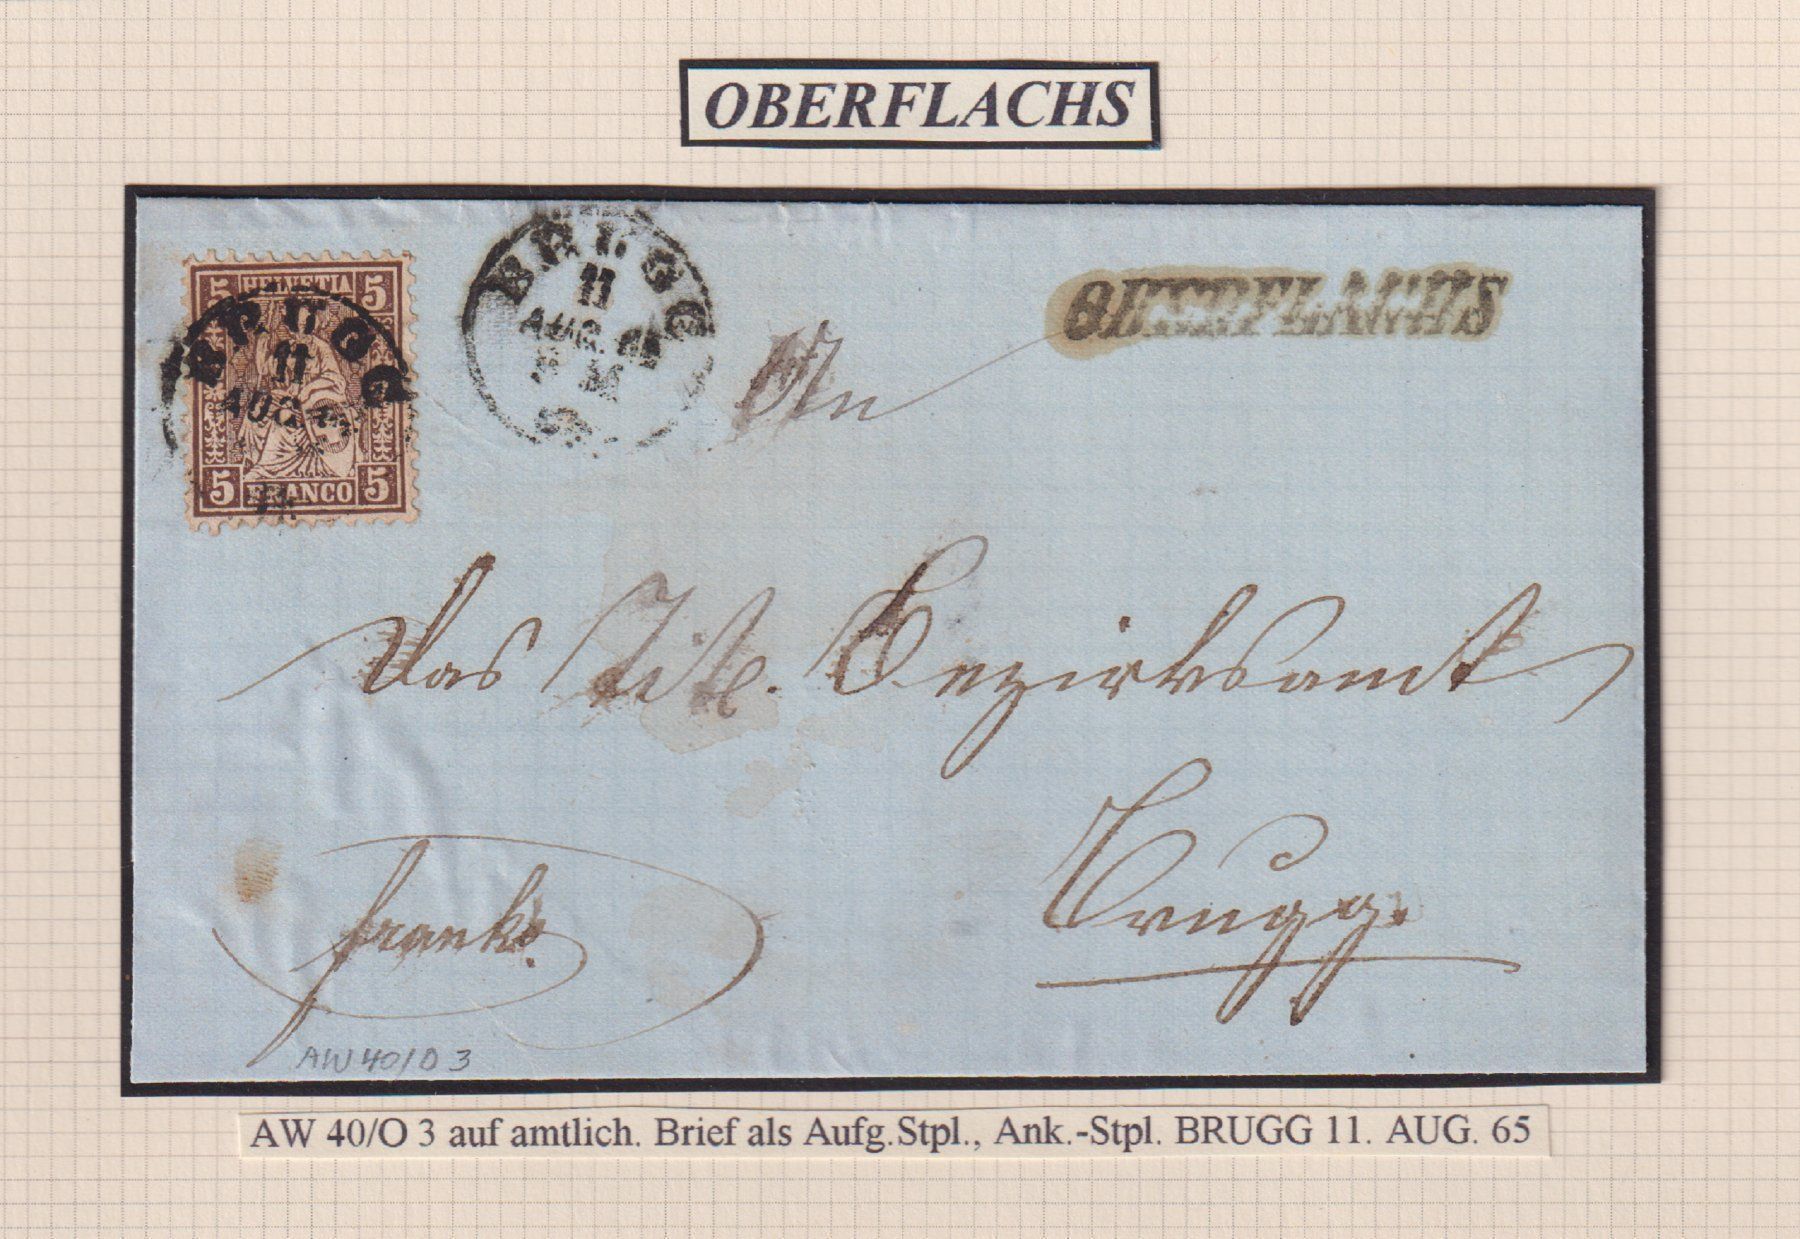 OBERFLACHS
5 HELVETIA 5
BRUGG
11
AUG
5 FRANCO 5
BRUGG
11
AUG. 65
OBERFLACHS
An
das Titl. Bezirksamt
Brugg.
franko.
AW 40/O 3
AW 40/O 3 auf amtlich. Brief als Aufg.Stpl., Ank.-Stpl. BRUGG 11. AUG. 65